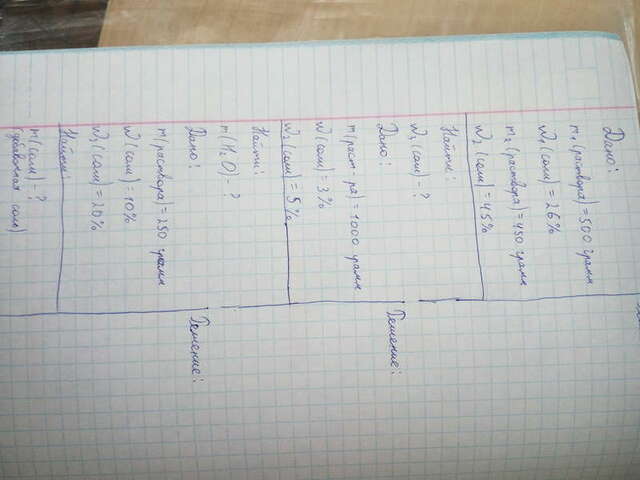 Дано:
m₁ (раствора) = 500 грамм
W₁ (соли) = 26%
m₂ (раствора) = 450 грамм
W₂ (соли) = 45%
Найти:
W₃ (соли) - ?
Дано:
Решение:
m (раст-ра) = 1000 грамм
W (соли) = 3%
W₂ (соли) = 5%
Найти:
m (H₂O) - ?
Дано:
Решение:
m (раствора) = 250 грамм
W (соли) = 10%
W₂ (соли) = 20%
Найти:
m (соли) - ?
(добавочная соли)